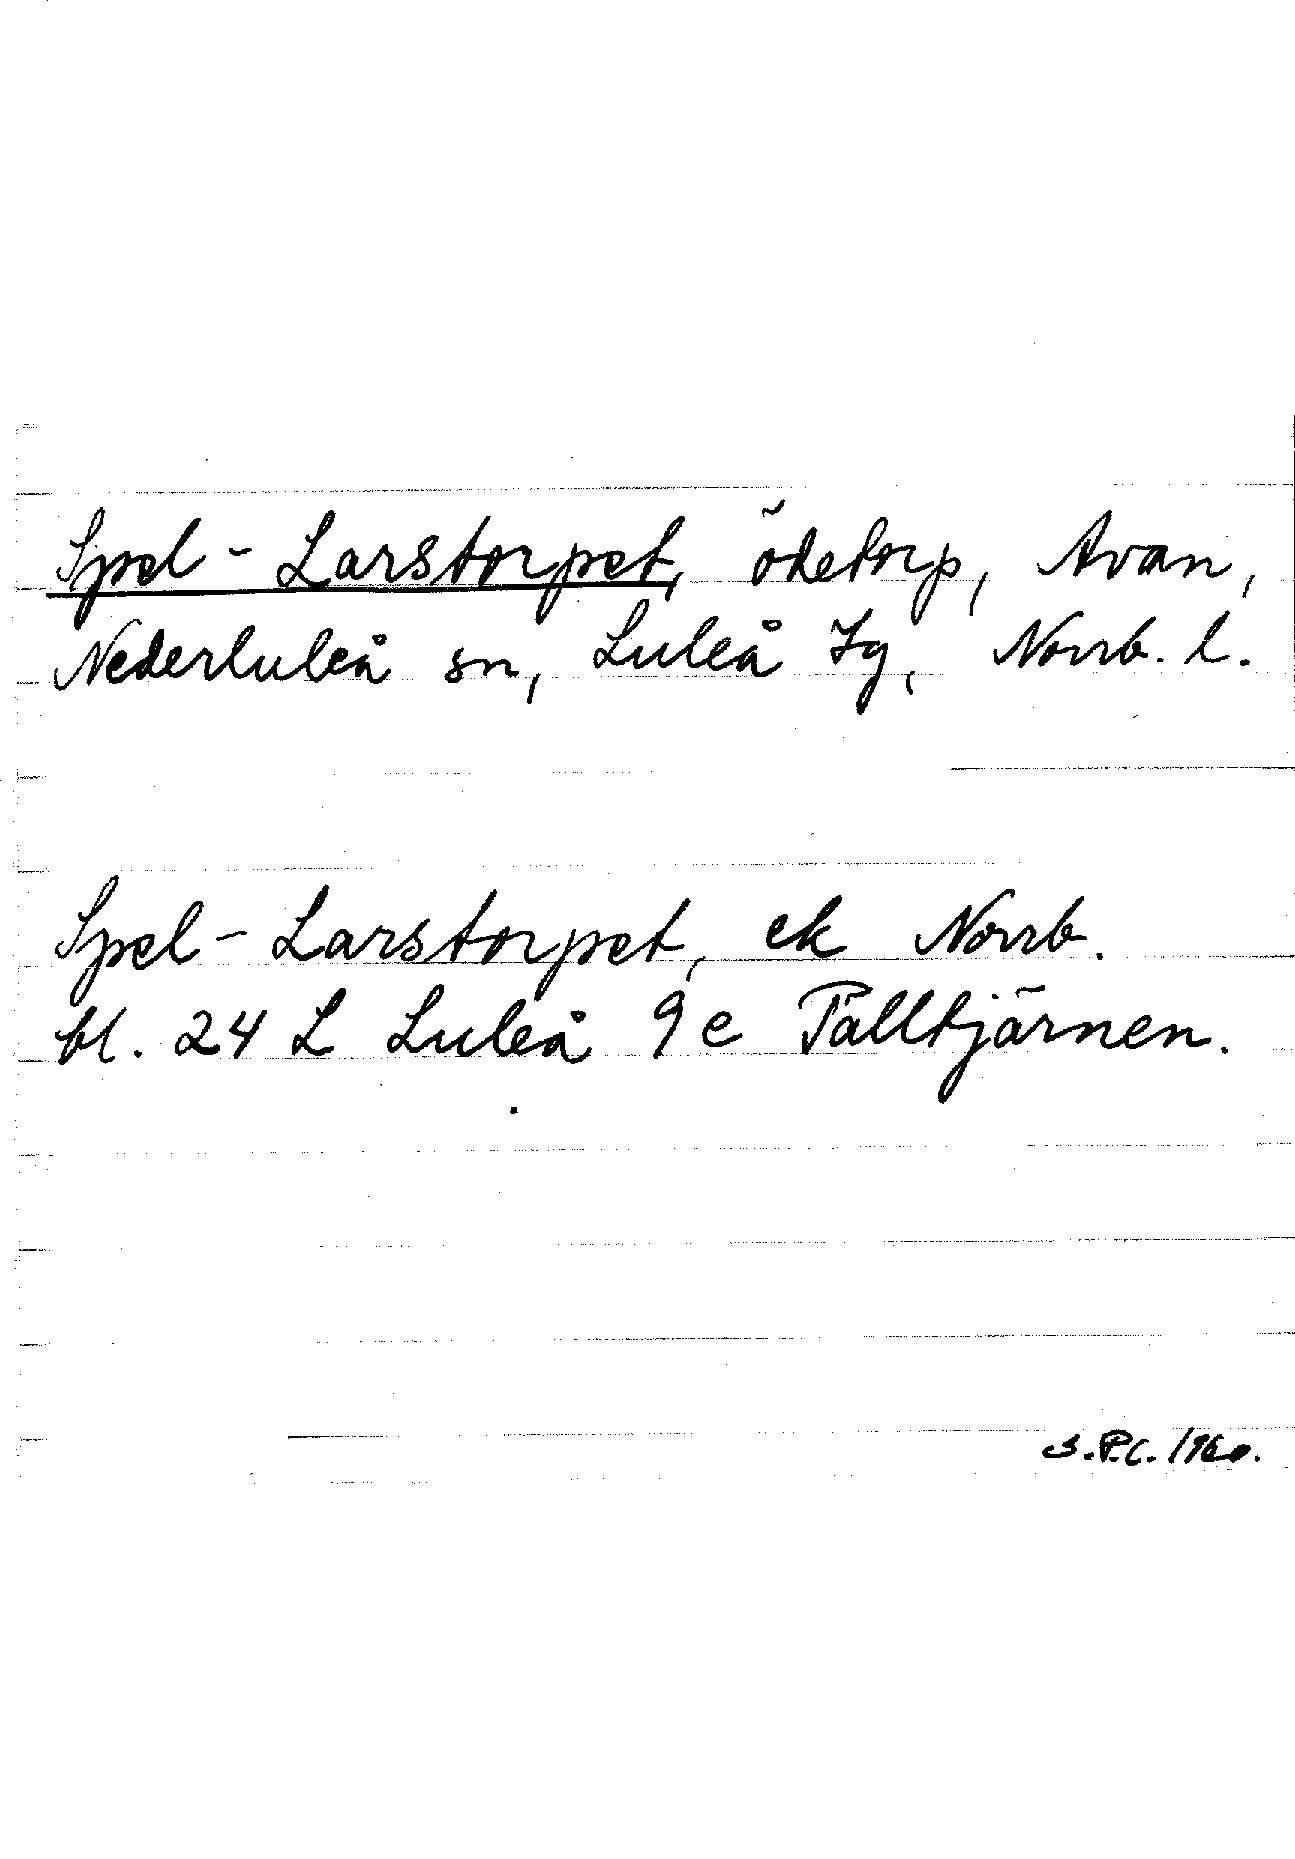 Spel-Larstorpet, ödetorp, Avan,
Nederluleå sn, Luleå tg, Norrb. l.
Spel-Larstorpet, ek Norrb.
bl. 24 L Luleå 9 e Talltjärnen.
S.P.C. 1960.